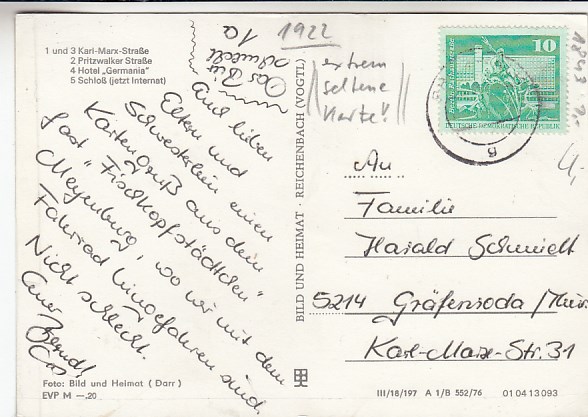 1 und 3 Karl-Marx-Straße
2 Pritzwalker Straße
4 Hotel „Germania“
5 Schloß (jetzt Internat)
Das Bier
schmeckt
1a
Euch lieben
Eltern und
Schwesterlein einen
Kartengruß aus dem
fast "Fischkopfstädtchen"
Meyenburg, wo wir mit dem
Fahrrad hingefahren sind.
Nicht schlecht.
Euer Bernd!
Foto: Bild und Heimat (Darr)
EVP M —,20
BILD UND HEIMAT · REICHENBACH (VOGTL)
1922
extrem
seltene
Karte!
10
DEUTSCHE DEMOKRATISCHE REPUBLIK
An
Familie
Harald Schmidt
5214 Gräfenroda /Thür.
Karl-Marx-Str. 31
III/18/197 A 1/B 552/76 01 04 13 093